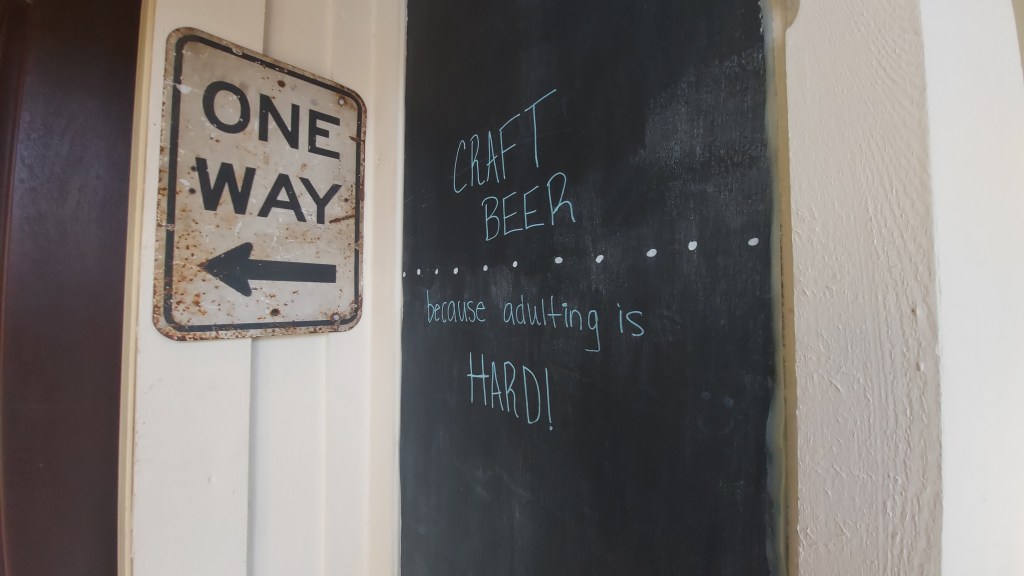 ONE
WAY
CRAFT
BEER
because adulting is
HARD!